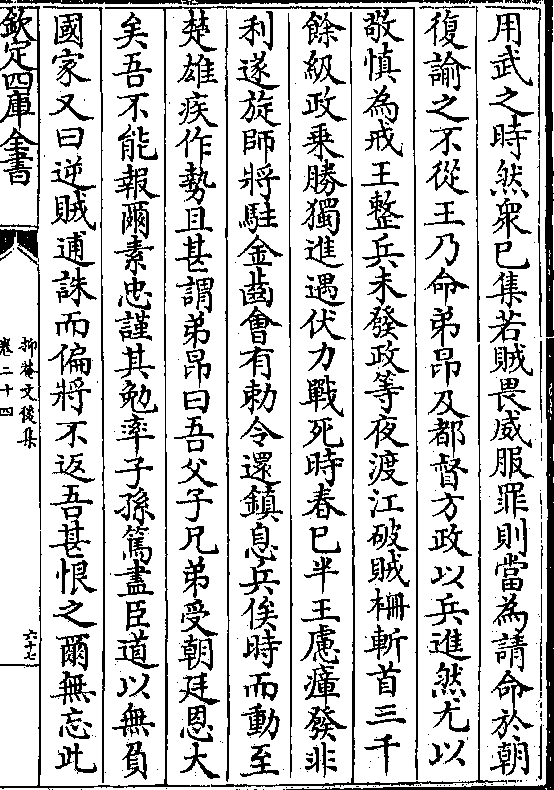 用武之時然衆已集若賊畏威服罪則當為請命於朝
復諭之不從王乃命弟昂及都督方政以兵進然尤以
敬慎為戒王整兵未發政等夜渡江破賊柵斬首三千
餘級政乗勝獨進遇伏力戰死時春已半王慮瘴發非
利遂旋師將駐金齒會有勅令還鎮息兵俟時而動至
楚雄疾作勢且甚謂弟昂曰吾父子兄弟受朝廷恩大
矣吾不能報爾素忠謹其勉率子孫篤盡臣道以無負
國家又曰逆賊逋誅而偏將不返吾甚恨之爾無忘此
欽定四庫全書
抑菴文後集
卷二十四
六十七